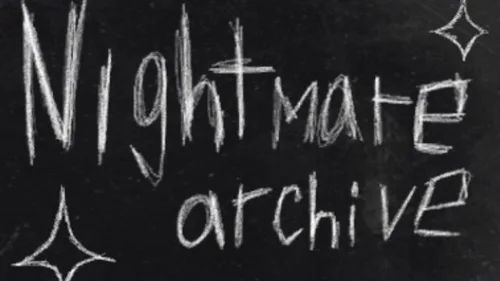 Nightmare
archive